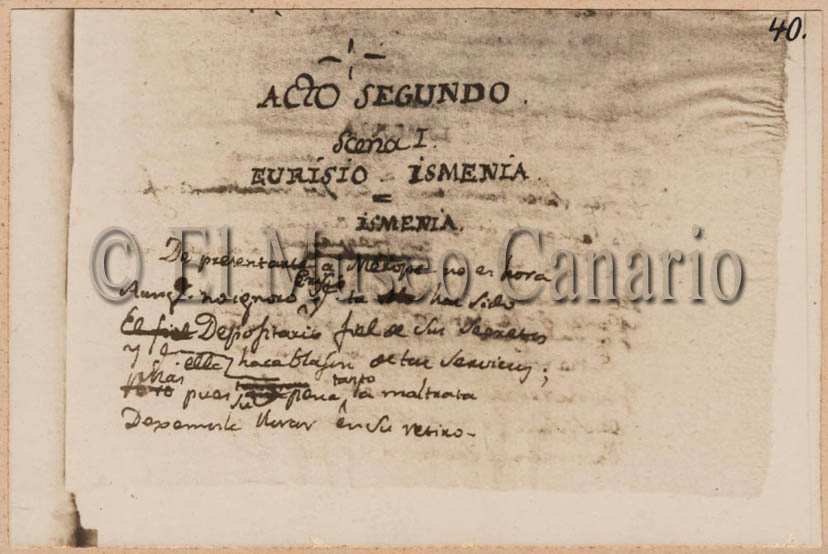 40.
ACTO SEGUNDO.
Scena I.
EURISIO ISMENIA.
=
ISMENIA.
De presentarte a Merope no es hora
Aunq. no ignoro Eurisio q. has sido
El fiel Depositario fiel de sus Secretos
y q. ella hace blasón de tus servicios;
pues su pena tanto la maltrata
Dexemosla llorar en su retiro.
© El Museo Canario